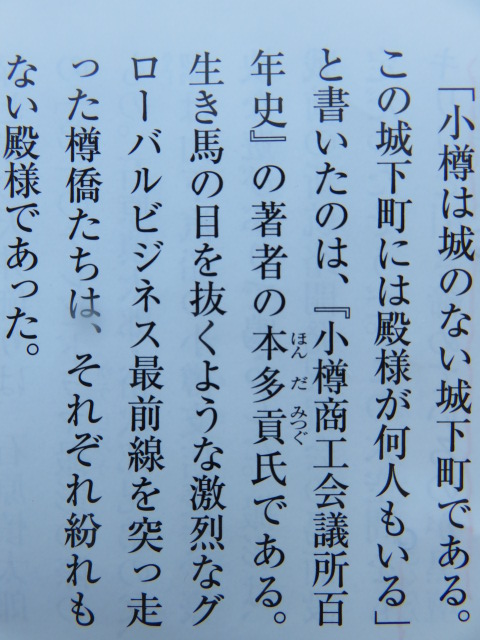 「小樽は城のない城下町である。
この城下町には殿様が何人もいる」
と書いたのは、『小樽商工会議所百
年史』の著者の本多貢氏である。
ほんだみつぐ
生き馬の目を抜くような激烈なグ
ローバルビジネス最前線を突っ走
った樽僑たちは、それぞれ紛れも
ない殿様であった。